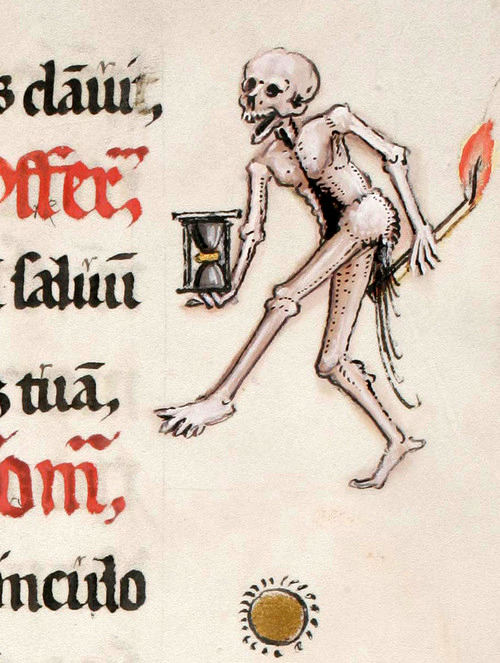 s clāuit,
Offer̄,
ſaluū
s tuā,
om̄,
inculo